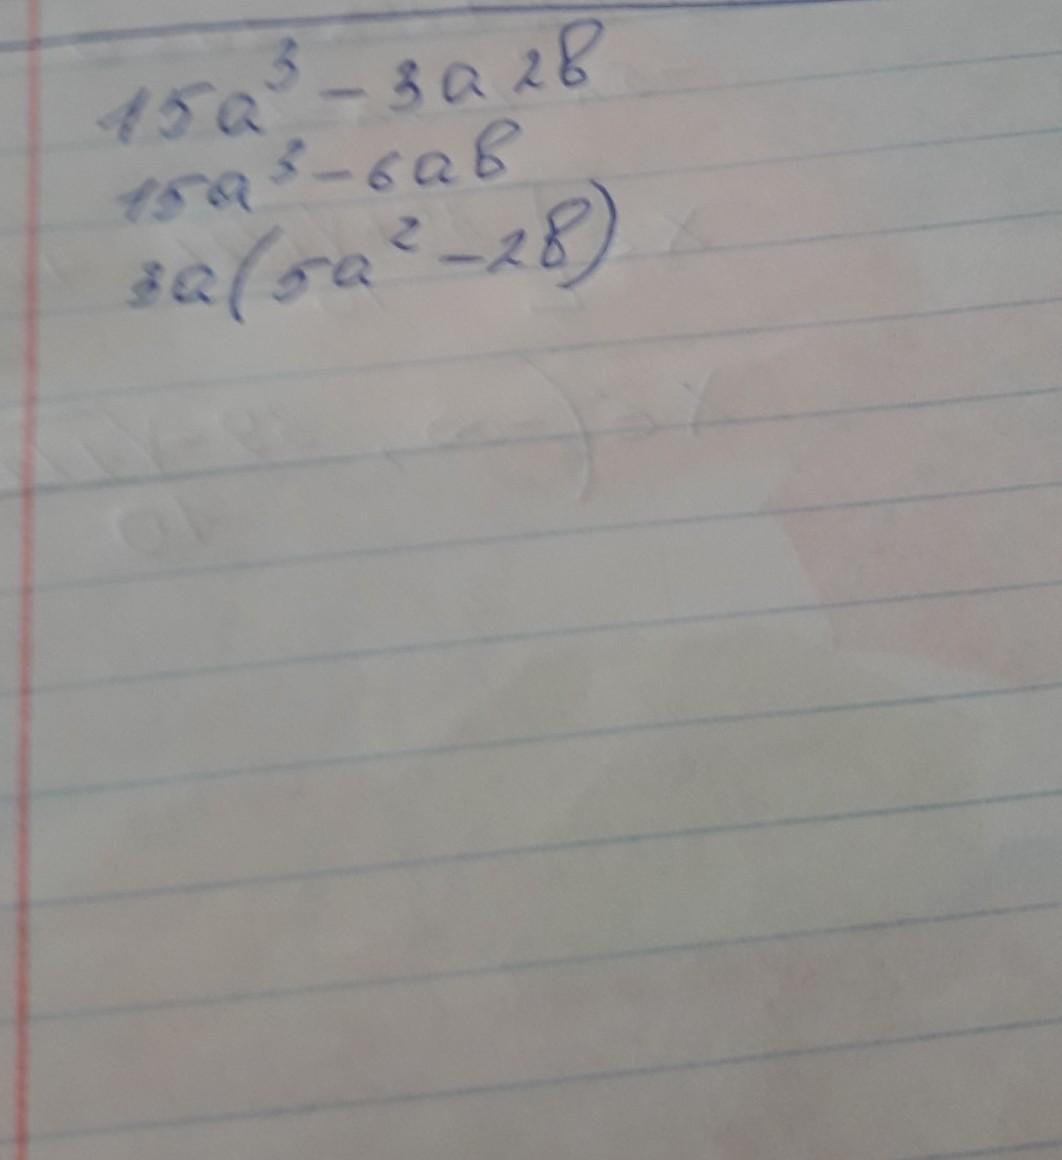 15a³ - 3a 2в
15a³ - 6aв
3a(5a² - 2в)